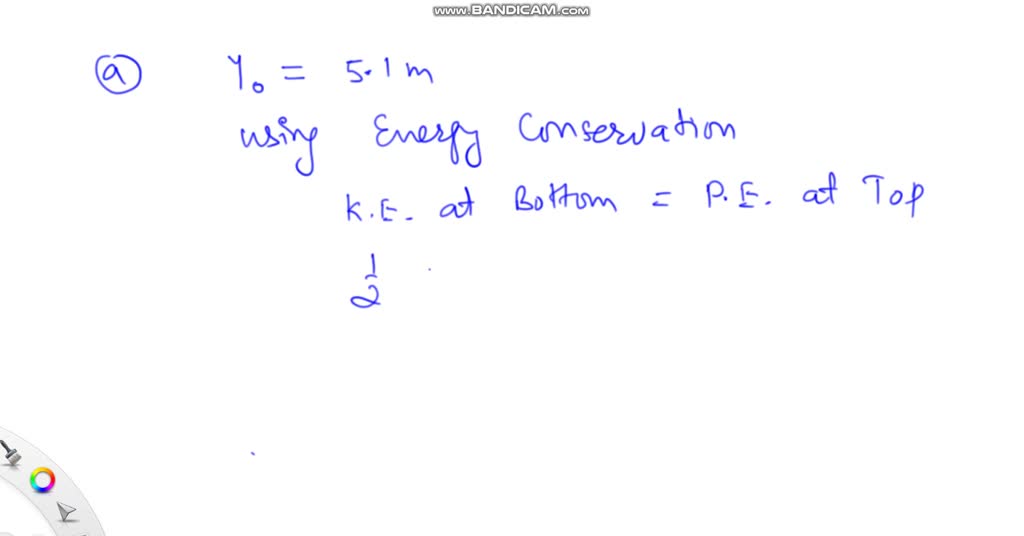 www.BANDICAM.com
ⓐ Y₀ = 5.1 m
using Energy Conservation
K.E. at Bottom = P.E. at Top
1/2